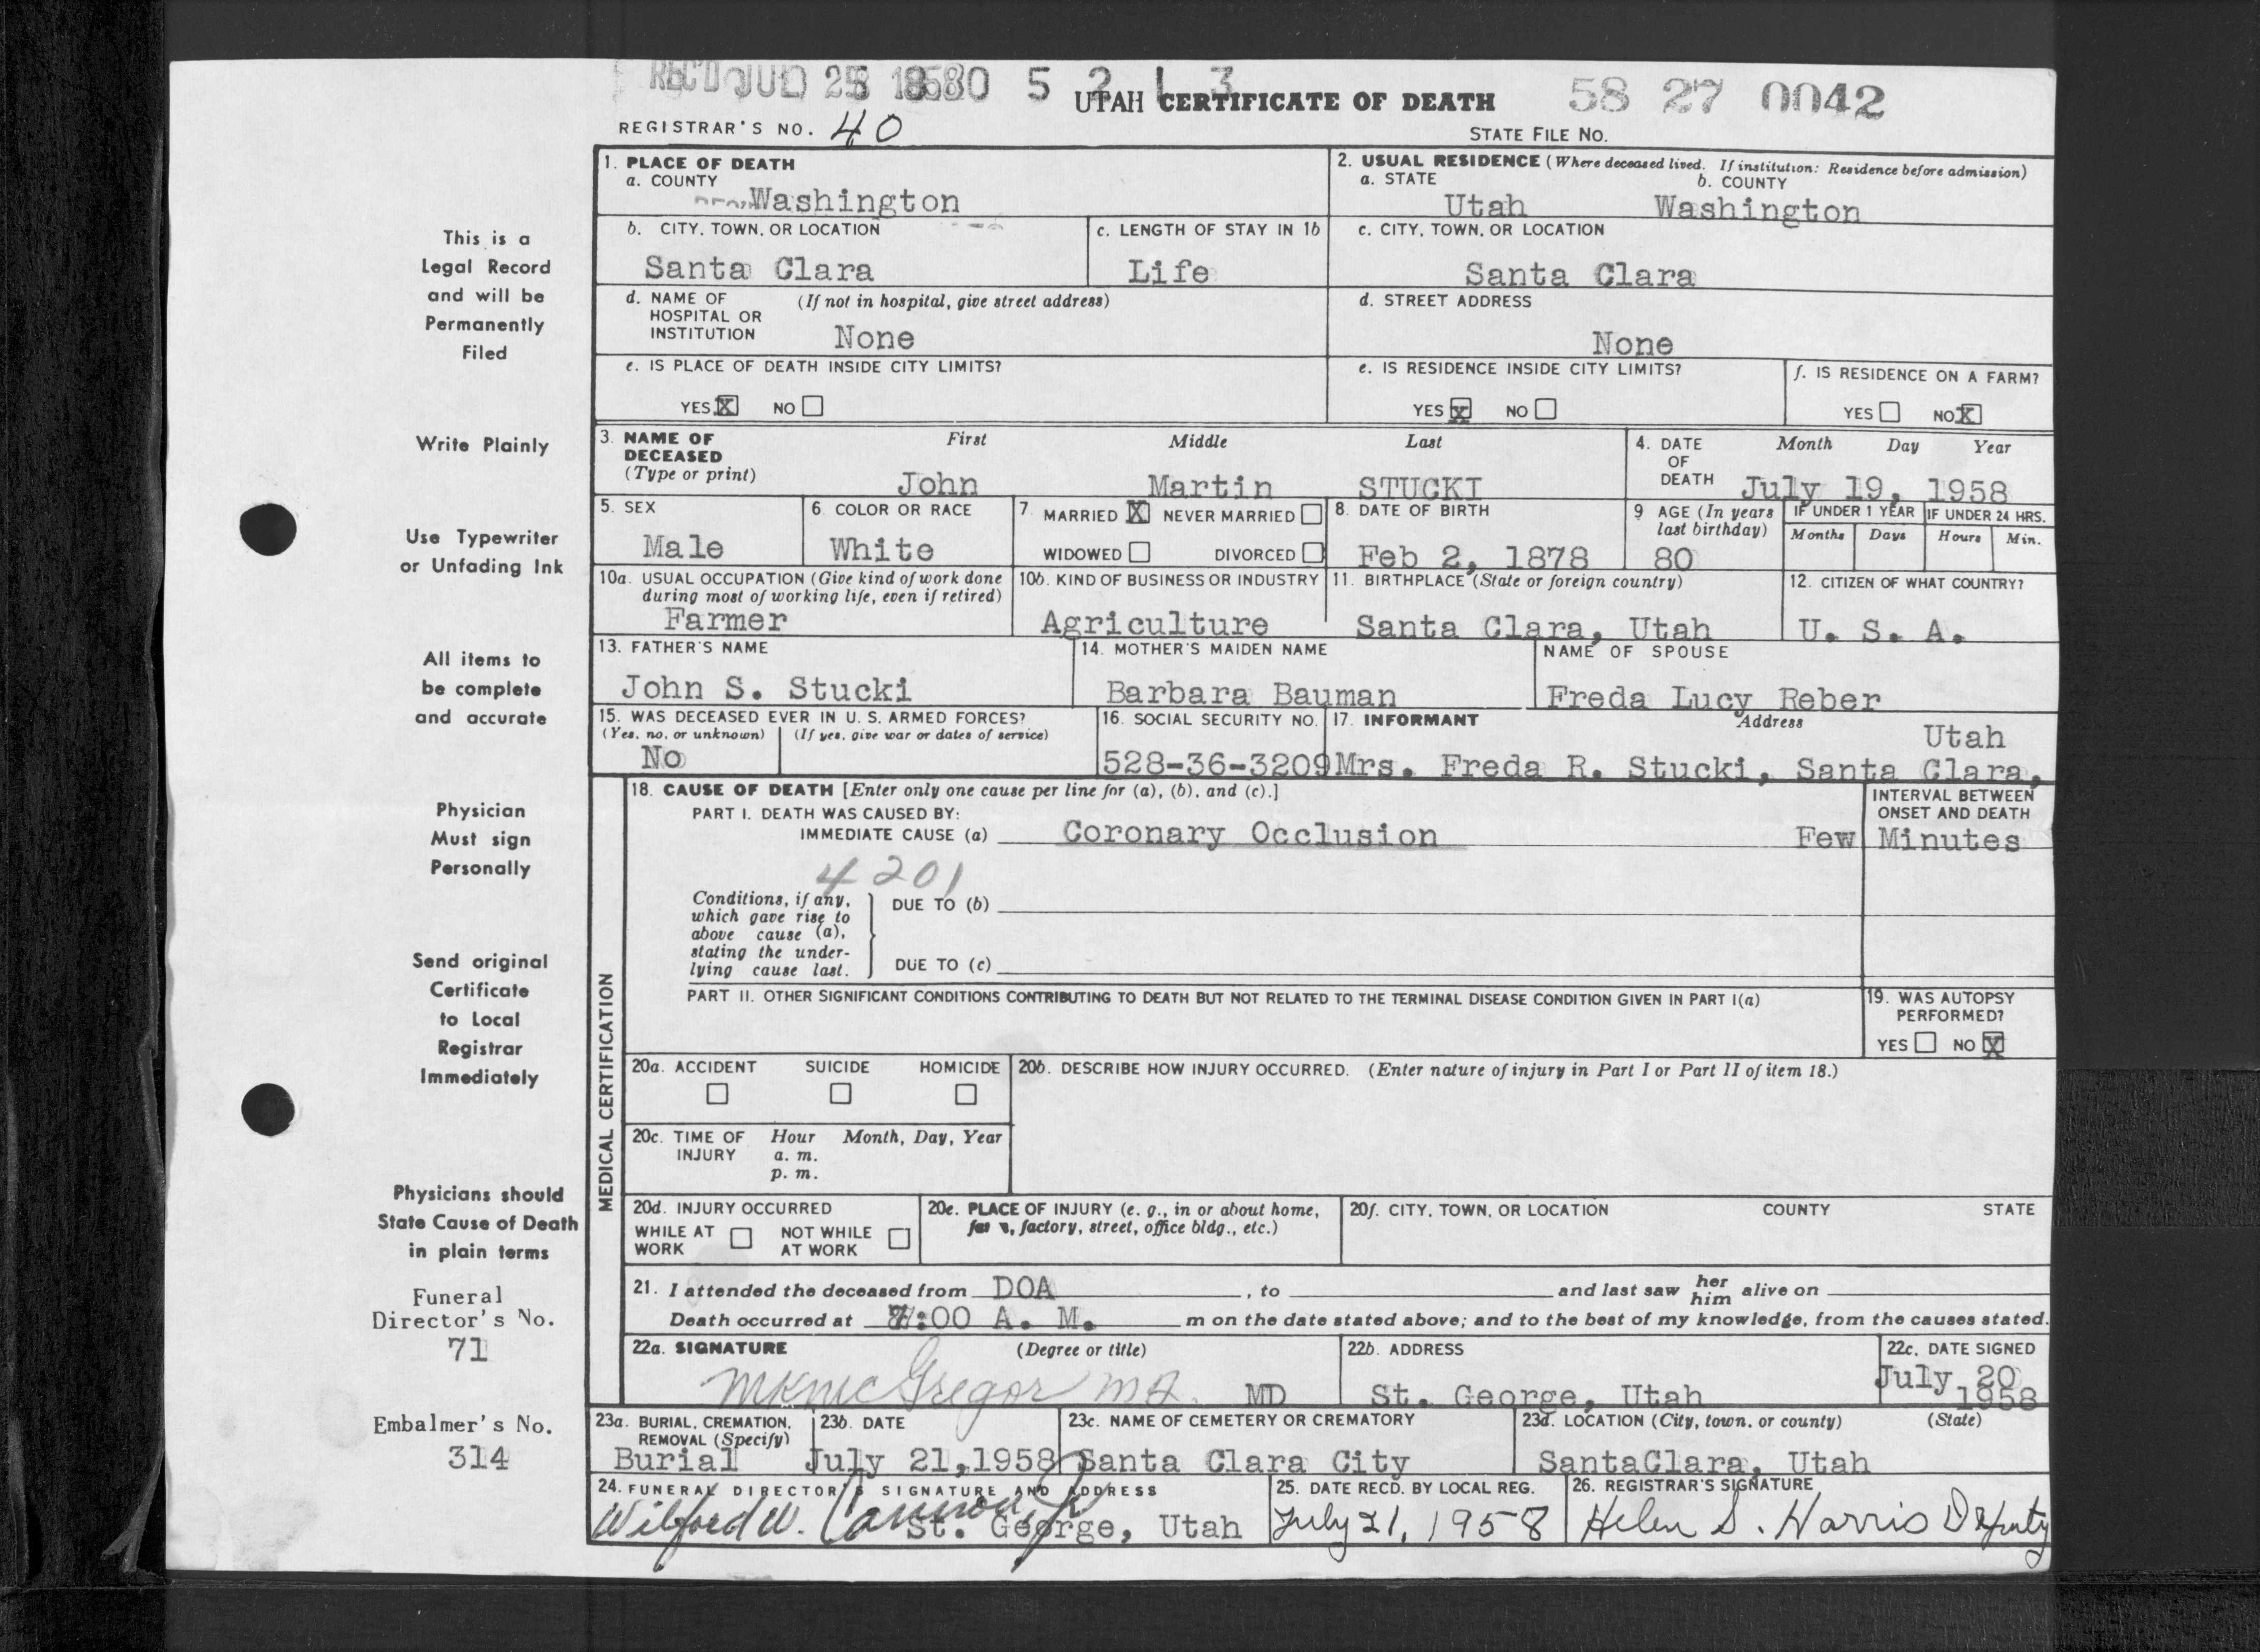 REC'D JUL 28 1958 0 5 2 1 3
UTAH CERTIFICATE OF DEATH
58 27 0042
REGISTRAR'S NO. 40
STATE FILE NO.
1. PLACE OF DEATH
a. COUNTY
Washington
2. USUAL RESIDENCE (Where deceased lived. If institution: Residence before admission)
a. STATE b. COUNTY
Utah Washington
b. CITY, TOWN, OR LOCATION
Santa Clara
c. LENGTH OF STAY IN 1b
Life
c. CITY, TOWN, OR LOCATION
Santa Clara
d. NAME OF HOSPITAL OR INSTITUTION (If not in hospital, give street address)
None
d. STREET ADDRESS
None
e. IS PLACE OF DEATH INSIDE CITY LIMITS?
YES X NO
e. IS RESIDENCE INSIDE CITY LIMITS?
YES X NO
f. IS RESIDENCE ON A FARM?
YES NO X
3. NAME OF DECEASED (Type or print)
First Middle Last
John Martin STUCKI
4. DATE OF DEATH
Month Day Year
July 19, 1958
5. SEX
Male
6. COLOR OR RACE
White
7. MARRIED X NEVER MARRIED
WIDOWED DIVORCED
8. DATE OF BIRTH
Feb 2, 1878
9 AGE (In years last birthday)
80
IF UNDER 1 YEAR
Months Days
IF UNDER 24 HRS.
Hours Min.
10a. USUAL OCCUPATION (Give kind of work done during most of working life, even if retired)
Farmer
10b. KIND OF BUSINESS OR INDUSTRY
Agriculture
11. BIRTHPLACE (State or foreign country)
Santa Clara, Utah
12. CITIZEN OF WHAT COUNTRY?
U. S. A.
13. FATHER'S NAME
John S. Stucki
14. MOTHER'S MAIDEN NAME
Barbara Bauman
NAME OF SPOUSE
Freda Lucy Reber
15. WAS DECEASED EVER IN U. S. ARMED FORCES?
(Yes, no, or unknown) (If yes, give war or dates of service)
No
16. SOCIAL SECURITY NO.
528-36-3209
17. INFORMANT Address
Utah
Mrs. Freda R. Stucki, Santa Clara,
MEDICAL CERTIFICATION
18. CAUSE OF DEATH [Enter only one cause per line for (a), (b), and (c).]
PART I. DEATH WAS CAUSED BY:
IMMEDIATE CAUSE (a) Coronary Occlusion
INTERVAL BETWEEN ONSET AND DEATH
Few Minutes
4201
Conditions, if any,
which gave rise to
above cause (a),
stating the under-
lying cause last.
DUE TO (b)
DUE TO (c)
PART II. OTHER SIGNIFICANT CONDITIONS CONTRIBUTING TO DEATH BUT NOT RELATED TO THE TERMINAL DISEASE CONDITION GIVEN IN PART I(a)
19. WAS AUTOPSY PERFORMED?
YES NO X
20a. ACCIDENT SUICIDE HOMICIDE
20b. DESCRIBE HOW INJURY OCCURRED. (Enter nature of injury in Part I or Part II of item 18.)
20c. TIME OF INJURY
Hour Month, Day, Year
a. m.
p. m.
20d. INJURY OCCURRED
WHILE AT WORK NOT WHILE AT WORK
20e. PLACE OF INJURY (e. g., in or about home, factory, street, office bldg., etc.)
20f. CITY, TOWN, OR LOCATION COUNTY STATE
21. I attended the deceased from DOA , to and last saw her him alive on
Death occurred at 7:00 A. M. m on the date stated above; and to the best of my knowledge, from the causes stated.
22a. SIGNATURE (Degree or title)
MKMcGregor MD. MD
22b. ADDRESS
St. George, Utah
22c. DATE SIGNED
July 20
1958
23a. BURIAL, CREMATION, REMOVAL (Specify)
Burial
23b. DATE
July 21,1958
23c. NAME OF CEMETERY OR CREMATORY
Santa Clara City
23d. LOCATION (City, town, or county) (State)
SantaClara, Utah
24. FUNERAL DIRECTOR'S SIGNATURE AND ADDRESS
Wilford W. Cannon, Jr
St. George, Utah
25. DATE RECD. BY LOCAL REG.
July 21, 1958
26. REGISTRAR'S SIGNATURE
Helen S. Harris Deputy
This is a
Legal Record
and will be
Permanently
Filed
Write Plainly
Use Typewriter
or Unfading Ink
All items to
be complete
and accurate
Physician
Must sign
Personally
Send original
Certificate
to Local
Registrar
Immediately
Physicians should
State Cause of Death
in plain terms
Funeral
Director's No.
71
Embalmer's No.
314